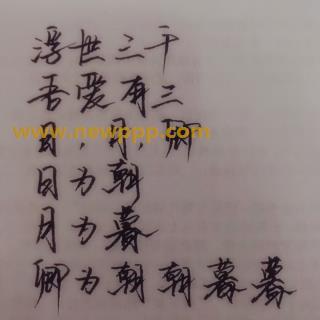 浮世三千
吾爱有三
www.newppp.com
日,月,卿
日为朝
月为暮
卿为朝朝暮暮